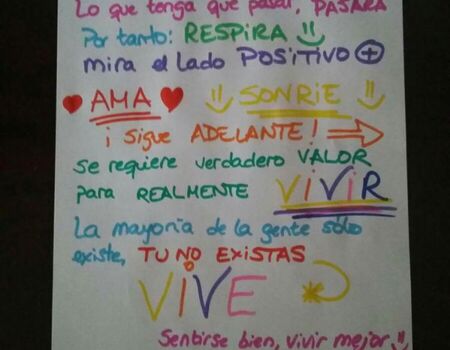 Lo que tenga que pasar, PASARÁ
Por tanto: RESPIRA
mira el lado POSITIVO
AMA SONRIE
¡ Sigue ADELANTE !
se requiere verdadero VALOR
para REALMENTE VIVIR
La mayoría de la gente sólo
existe, TU NO EXISTAS
VIVE
Sentirse bien, vivir mejor